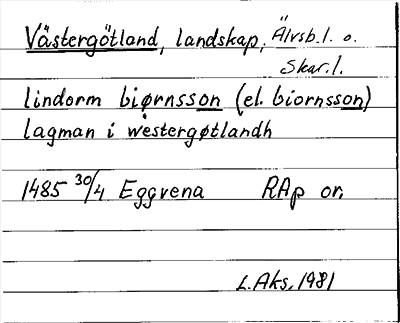 Västergötland, landskap, Älvsb.l. o.
Skar.l.
lindorm biørnsson (el. biornsson)
lagman i westergøtlandh
1485 30/4 Eggvena RAp or.
L.Aks. 1981